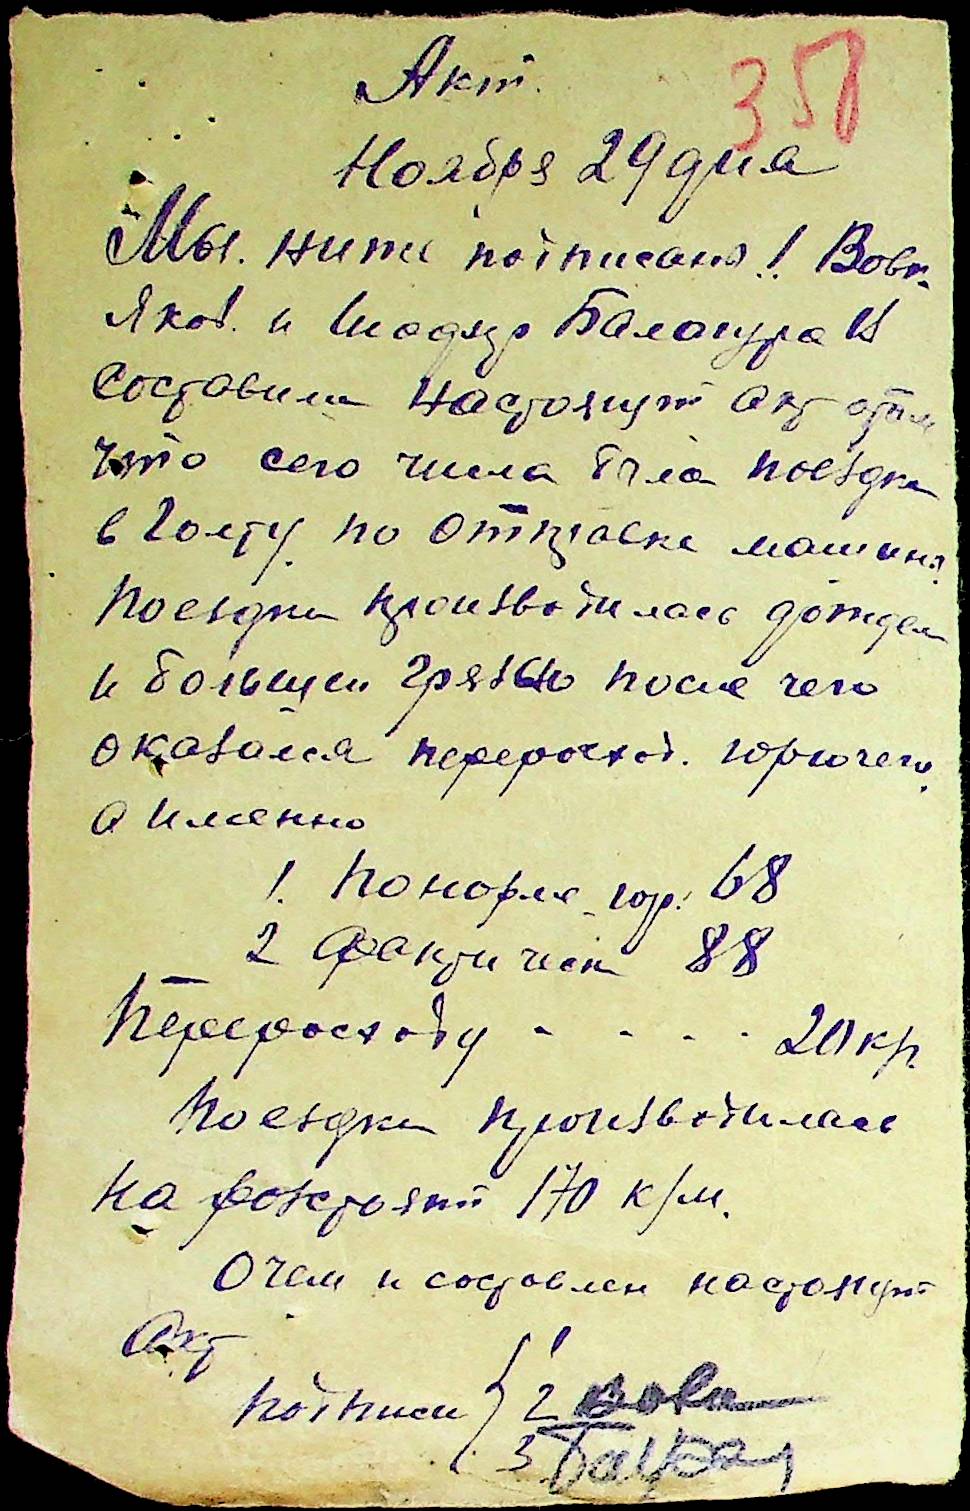 Акт.
358
Ноября 29 дня
Мы. ниже подписаня! Вовк
Яков. и Балацура И
составили настоящий акт отом
что сего числа была поездка
в Голту по отправке машины.
Поездка производилась дождем
и большую грязью после чего
оказался перерасход. горючего.
а именно
1. Понорме гор. 68
2 Фактическ 88
Перерасходу - - - - 20 кг.
Поездка производилась
на растояний 170 к/м.
Очем и составлен настоящий
Акт
Подписи { 1
2 Вовк
3